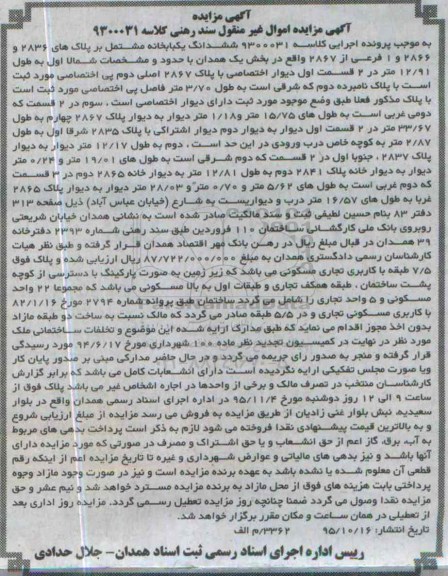 آگهی مزایده
آگهی مزایده اموال غیر منقول سند رهنی کلاسه ۹۳۰۰۰۳۱
به موجب پرونده اجرایی کلاسه ۹۳۰۰۰۳۱ ششدانگ یکبابخانه مشتمل بر پلاک های ۲۸۳۶ و
۲۸۶۶ و ۱ فرعی از ۲۸۶۷ واقع در بخش یک همدان با حدود و مشخصات شمالا اول به طول
۱۲/۹۱ متر در ۲ قسمت اول دیوار اختصاصی با پلاک ۲۸۶۷ اصلی دوم پی اختصاصی مورد ثبت
است با پلاک نامبرده دوم که شرقی است به طول ۳/۷۰ متر فاصل پی اختصاصی مورد ثبت است
با پلاک مذکور فعلا طبق وضع موجود مورد ثبت دارای دیوار اختصاصی است ، سوم در ۲ قسمت که
دومی غربی است به طول های ۱۵/۷۵ متر و ۱/۱۸ متر دیوار به دیوار پلاک ۲۸۶۷ چهارم به طول
۳۳/۶۷ متر در ۲ قسمت اول دیوار به دیوار دوم دیوار اشتراکی با پلاک ۲۸۳۵ شرقا اول به طول
۲/۸۷ متر به کوچه خاص درب ورودی در این حد است ، دوم به طول ۱۲/۱۷ متر دیوار به دیوار
پلاک ۲۸۳۷ ، جنوبا اول در ۲ قسمت که دوم شرقی است به طول های ۱۹/۰۱ متر و ۰/۲۴ متر
دیوار به دیوار خانه پلاک ۲۸۴۱ دوم به طول ۱۲/۸۱ متر به دیوار خانه ۲۸۶۵ دوم در ۳ قسمت
که دوم غربی است به طول های ۵/۶۲ متر و ۰/۷۰ متر و ۲۸/۰۳ متر دیوار به دیوار پلاک ۲۸۶۵
غربا به طول های ۱۶/۵۷ متر درب و دیواریست به شارع (خیابان عباس آباد) ذیل صفحه ۳۱۳
دفتر ۸۳ بنام حسین لطیفی ثبت و سند مالکیت صادر شده است به نشانی همدان خیابان شریعتی
روبروی بانک ملی کارگشائی ساختمان ۱۱۰ فروردین طبق سند رهنی شماره ۲۳۹۳ دفترخانه
۳۹ همدان در قبال مبلغ ریال در رهن بانک مهر اقتصاد همدان قرار گرفته و طبق نظر هیات
کارشناسان رسمی دادگستری همدان به مبلغ ۸۷/۷۲۲/۰۰۰/۰۰۰ ریال ارزیابی شده و پلاک فوق
۷/۵ طبقه با کاربری تجاری مسکونی می باشد که زیر زمین به صورت پارکینگ با دسترسی از کوچه
پشت ساختمان ، طبقه همکف تجاری و طبقات اول به بالا مسکونی می باشد که مجموعا ۲۲ واحد
مسکونی و ۵ واحد تجاری را شامل می گردد ساختمان طبق پروانه شماره ۲۷۹۴ مورخ ۸۲/۱/۱۶
با کاربری مسکونی تجاری و در ۵/۵ طبقه صادر می گردد که مالک نسبت به ساخت دو طبقه مازاد
بدون اخذ مجوز اقدام می نماید که طبق مدارک ارایه شده این موضوع و تخلفات ساختمانی ملک
مورد نظر در نهایت در کمیسیون تجدید نظر ماده ۱۰۰ شهرداری مورخ ۹۴/۶/۱۷ مورد رسیدگی
قرار گرفته و منجر به صدور رای جریمه می گردد و در حال حاضر مدارکی مبنی بر صدور پایان کار
ویا صورت مجلس تفکیکی ارایه نگردیده است دارای انشعابات کامل می باشد که برابر گزارش
کارشناسان منتخب در تصرف مالک و برخی از واحدها در اجاره اشخاص غیر می باشد پلاک فوق از
ساعت ۹ الی ۱۲ روز دوشنبه مورخ ۹۵/۱۱/۴ در اداره اجرای اسناد رسمی همدان واقع در بلوار
سعیدیه، نبش بلوار غنی زادیان از طریق مزایده به فروش می رسد مزایده از مبلغ ارزیابی شروع
و به بالاترین قیمت پیشنهادی نقدا فروخته می شود لازم به ذکر است پرداخت بدهی های مربوط
به آب، برق، گاز اعم از حق انشعاب و یا حق اشتراک و مصرف در صورتی که مورد مزایده دارای
آنها باشد و نیز بدهی های مالیاتی و عوارض شهرداری و غیره تا تاریخ مزایده اعم از اینکه رقم
قطعی آن معلوم شده یا نشده باشد به عهده برنده مزایده است و نیز در صورت وجود مازاد وجوه
پرداختی بابت هزینه های فوق از محل مازاد به برنده مزایده مسترد خواهد شد و نیم عشر و حق
مزایده نقدا وصول می گردد ضمنا چنانچه روز مزایده تعطیل رسمی گردد. مزایده روز اداری بعد
از تعطیلی در همان ساعت و مکان مقرر برگزار خواهد شد.
تاریخ انتشار: ۹۵/۱۰/۱۶ ۳۳۶۲/م الف
رییس اداره اجرای اسناد رسمی ثبت اسناد همدان- جلال حدادی